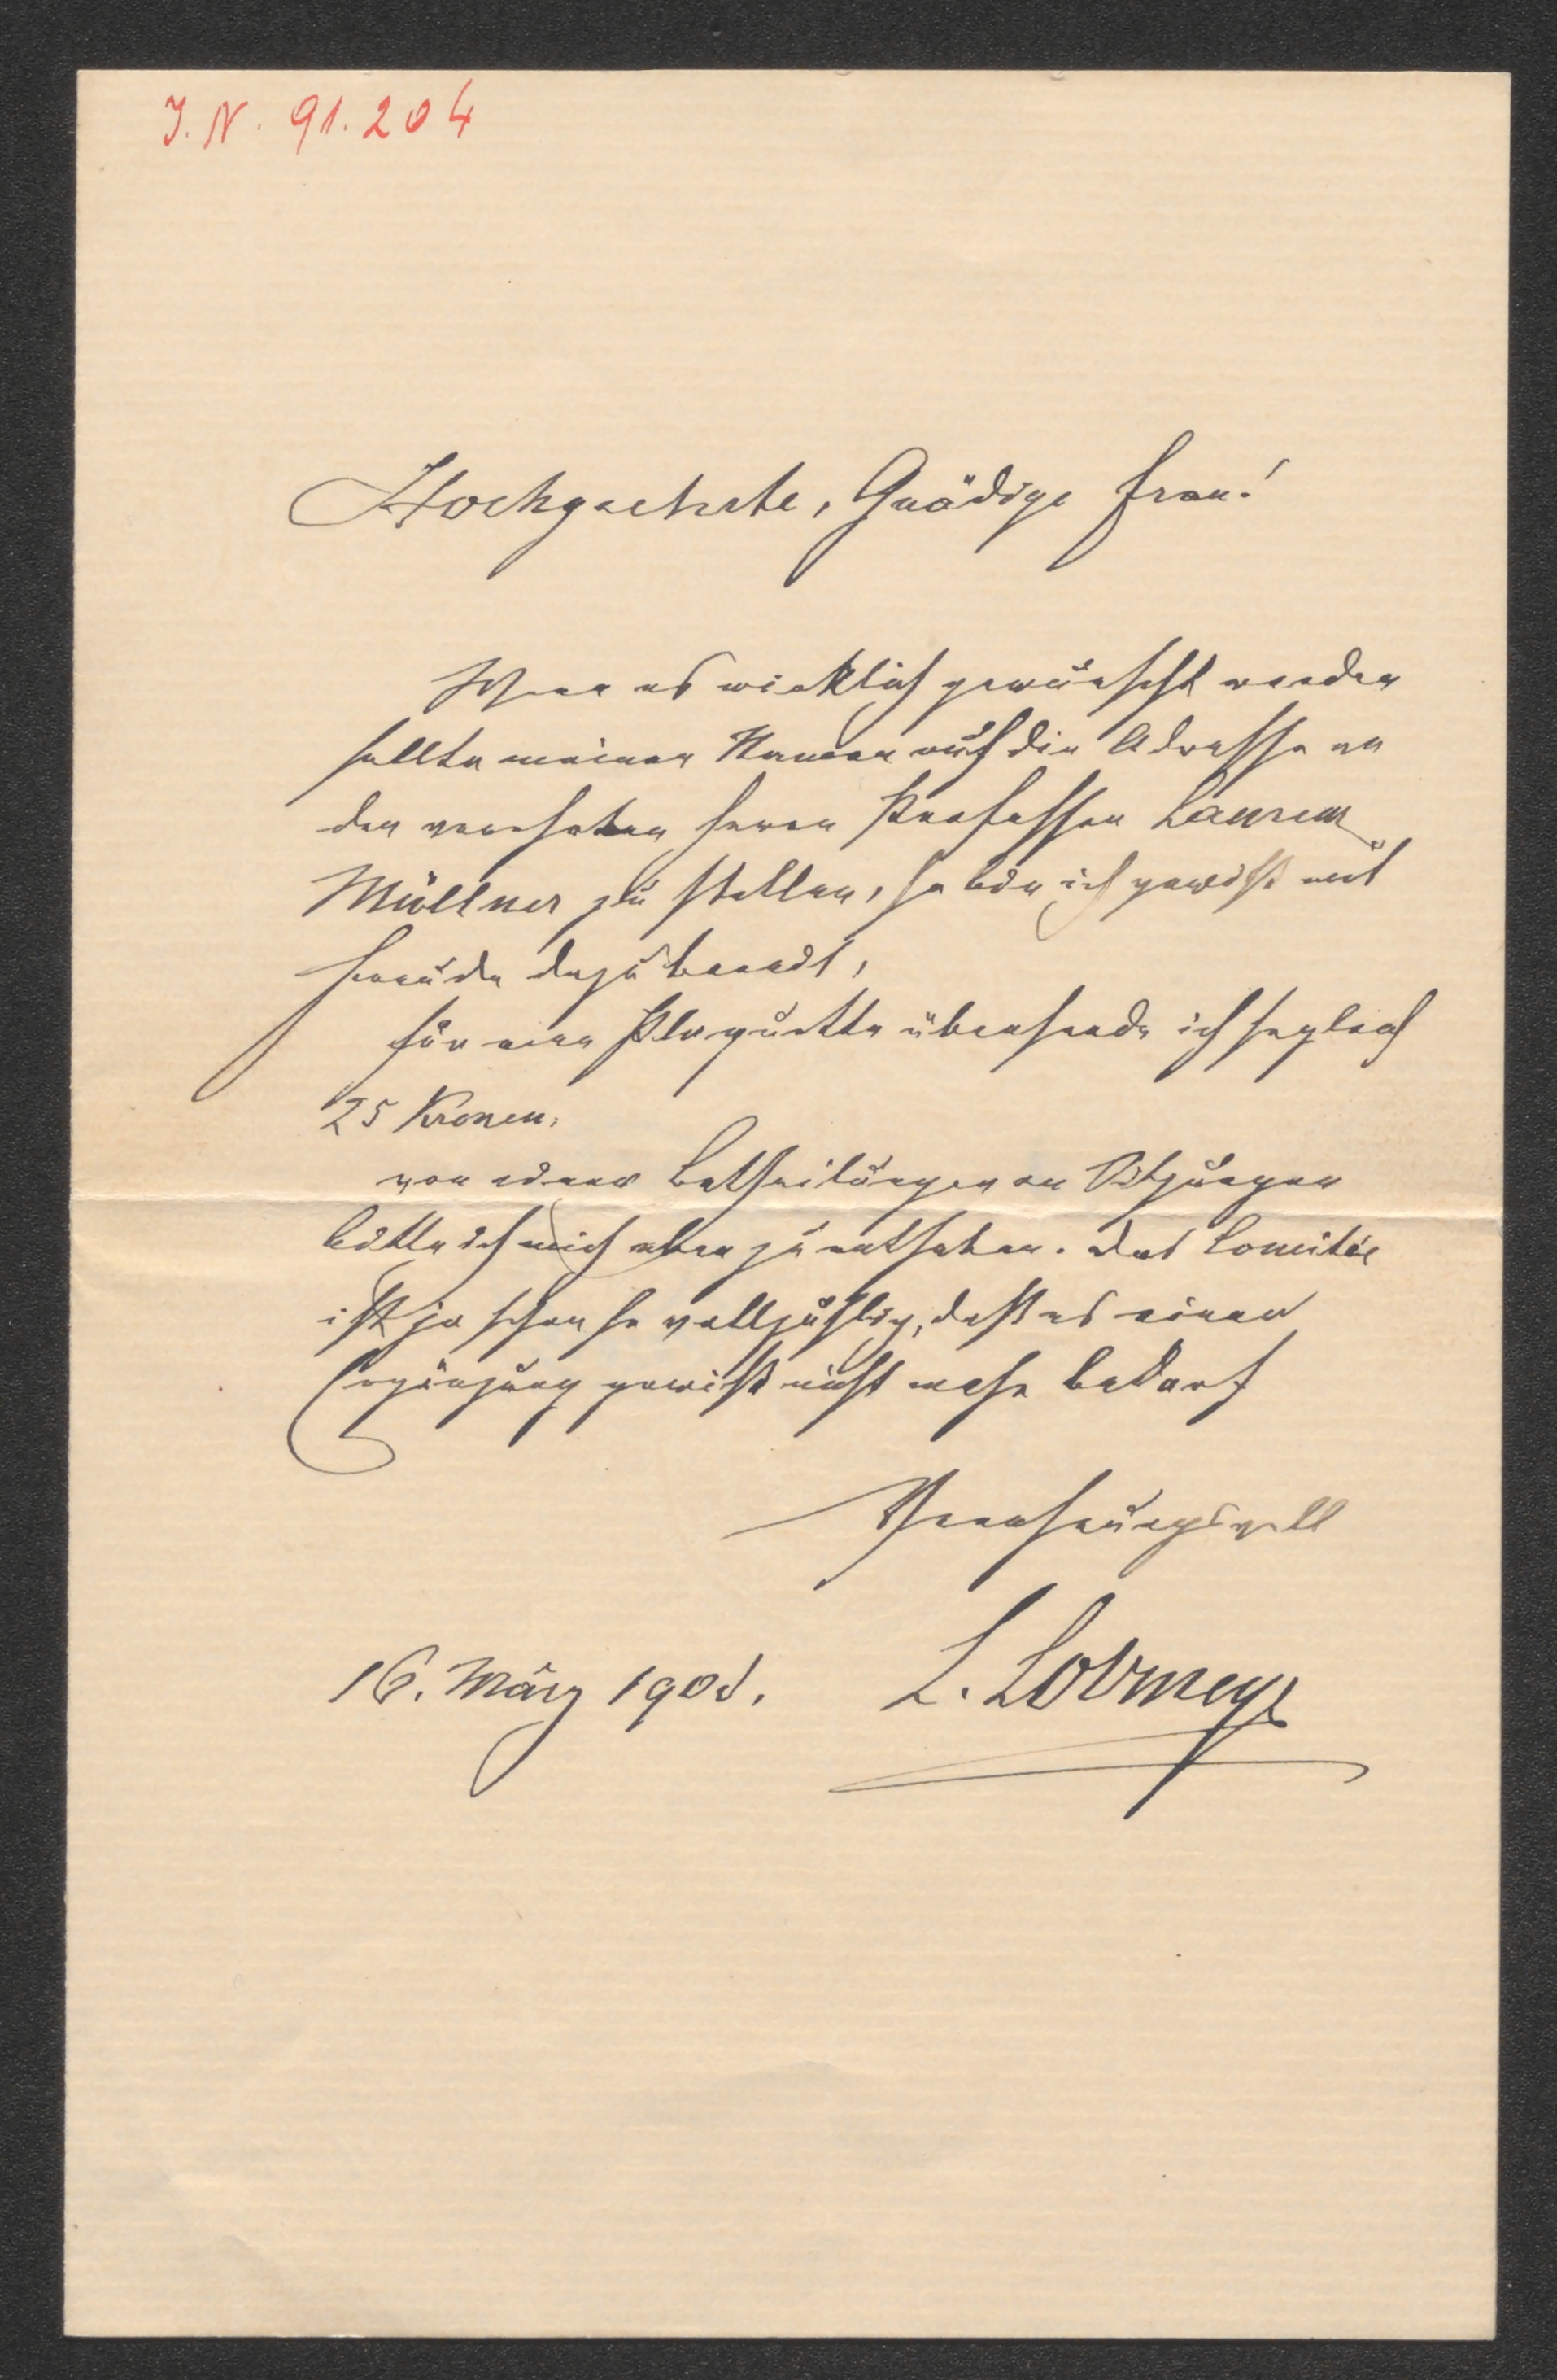 J. N. 91.204
Hochgeehrte, Gnädige Frau!
Wenn es wirklich gewünscht werden
sollte meinen Namen auf die Adresse an
den verehrten Herrn Professor Laurenz
Müllner zu stellen, so bin ich gewiß mit
Freude dazu bereit,
für eine Plaquette übersende ich sogleich
25 Kronen,
von einer Betheiligung an Sitzungen
bitte ich mich aber zu entheben. Das Comitée
ist ja schon so vollzählig, daß es einer
Ergänzung gewiß nicht mehr bedarf
Verehrungsvoll
16. März 1908. L. Lobmeyr